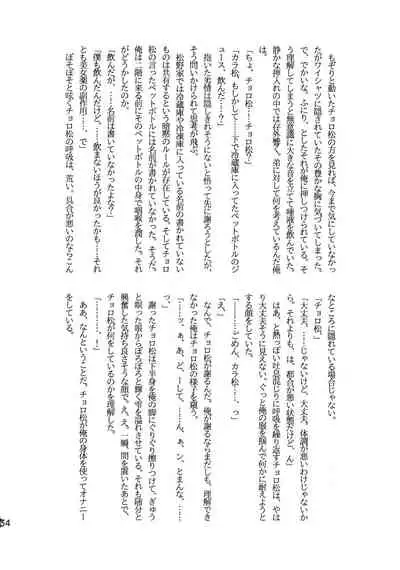 もぞりと動いたチョロ松の方を見れば、今まで気にしていなかっ
たがワイシャツに隠されていたその豊かな胸に気づいてしまった。
で、でかいな、ふにり、としたそれが俺に押しつけられている。そ
う理解してしまうと無意識に大きな音を立てて唾液を飲んでいた。
静かな押し入れの中では存外響く。弟に対して何を考えているんだ俺
は。
「ちょ、チョロ松…チョロ松？」
「カラ松、もしかして……下で冷凍庫に入ってたペットボトルのジ
ュース、飲んだ……？」
抱いた劣情は隠しきれそうにないと悟って先に謝ろうとしたが、
そう問いかけられて思考が飛ぶ。
松野家では冷蔵庫や冷凍庫に入っている名前の書かれていない
ものは共有するという暗黙のルールが存在している。そしてチョロ
松の言ったペットボトルには名前が書かれていなかった。そうだ。
俺は二階に来る前にそのペットボトルの中身で咽喉を潤した。それ
がどうかしたのか。
「飲んだが、……名前は書いていなかったよな？」
「僕も飲んだんだけど、……飲まないほうが良かったかも……それ
とも美女薬の副作用……、で」
ぼそぼそと呟くチョロ松の呼吸は、荒い。具合が悪いのならこん
なところに隠れている場合じゃない。
「チョロ松」
「大丈夫、……じゃないけど、大丈夫。体調が悪いわけじゃないか
ら。それよりも、は、都合が悪い状態だけど、ん」
はあ、と熱っぽい吐息混じりに呼吸を繰り返すチョロ松は、やは
り大丈夫そうに見えない。ぐっと俺の服を掴んで何かに耐えようと
する顔をしていた。
「…………ごめん、カラ松、……っ」
「え」
なんで、チョロ松が謝るんだ。俺が謝るならまだしも。理解でき
なかった俺はチョロ松の様子を窺う。
「……ッ、ぁあ、ど、ーして、……んぁ、ン、とまんな、……
っ」
謝ったチョロ松は下半身を俺の脚にぐりぐり擦りつけて、ぎゅう
と瞑った眼からぽろぽろと輝く雫を溢れさせている。それも随分と
興奮した気持ち良さそうな顔で。え、え。一瞬、間を置いたあとで、
チョロ松が何をしているのかを理解した。
「…………、！」
ああ、なんということだ。チョロ松が俺の身体を使ってオナニー
をしている。
34